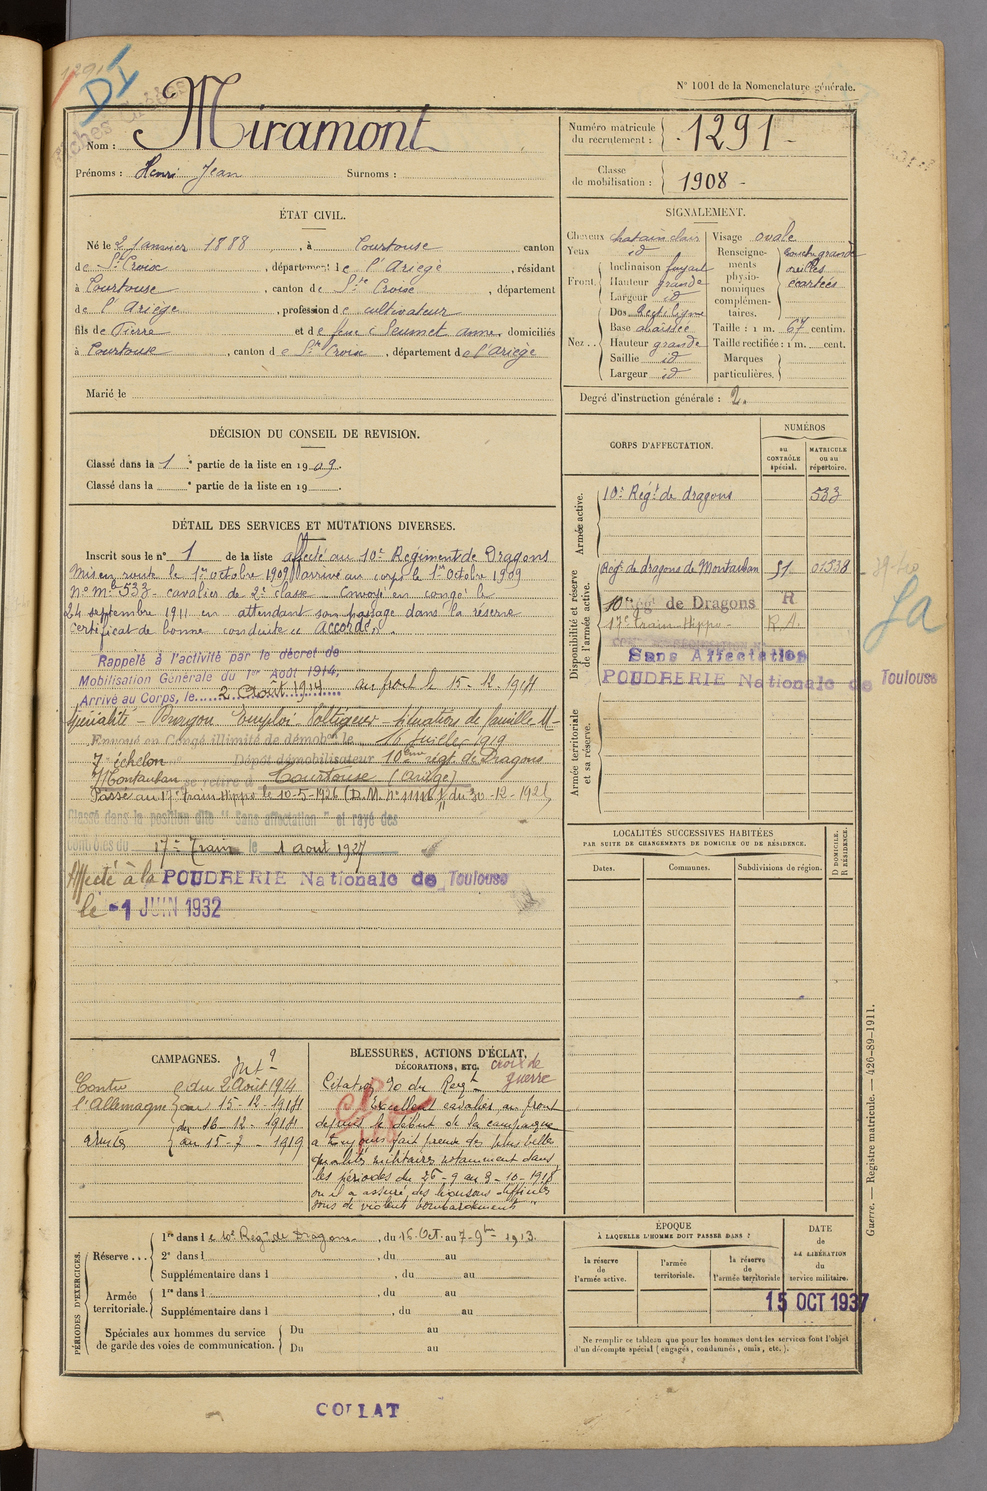 1291
DI
N° 1001 de la Nomenclature générale.
Nom : Miramont
Prénoms : Henri Jean Surnoms :
Numéro matricule du recrutement : 1291
Classe de mobilisation : 1908
ÉTAT CIVIL.
Né le 2 Janvier 1888, à Courtouse canton
de Ste Croix, département de l'Ariège, résidant
à Courtouse, canton de Ste Croix, département
de l'Ariège, profession de cultivateur
fils de Pierre et de feue Seumet Anne, domiciliés
à Courtouse, canton de Ste Croix, département de l'Ariège
Marié le
SIGNALEMENT.
Cheveux chatain clair
Yeux id
Front. Inclinaison fuyant
Hauteur grande
Largeur id
Nez. Dos Rectiligne
Base abaissée
Hauteur grande
Saillie id
Largeur id
Visage ovale
Renseignements physionomiques complémentaires. bouche grande
oreilles
écartées
Taille : 1 m. 67 centim.
Taille rectifiée : 1 m. cent.
Marques particulières.
Degré d'instruction générale : 2.
DÉCISION DU CONSEIL DE REVISION.
Classé dans la 1e partie de la liste en 1909.
Classé dans la e partie de la liste en 19 .
DÉTAIL DES SERVICES ET MUTATIONS DIVERSES.
Inscrit sous le n° 1 de la liste affecté au 10e Régiment de Dragons
Mis en route le 1er octobre 1909 arrivé au corps le 1er Octobre 1909
N° Mle 533 - cavalier de 2e classe Envoyé en congé le
24 septembre 1911 en attendant son passage dans la réserve
Certificat de bonne conduite "Accordé".
Rappelé à l'activité par le décret de
Mobilisation Générale du 1er Août 1914,
Arrivé au Corps, le 2 Août 1914 au front le 15-12-1914
Spécialité - Emploi Voltigeur - situation de famille M-
Envoyé en Congé illimité de démobon le 16 Juillet 1919
7e échelon Dépôt démobilisateur 10ème régt de Dragons
Montauban se retire à Courtouse (Ariège)
Passé au 17e Train Hippo le 10-5-1926 (D.M. n° 11116 du 30-12-1925
Classé dans la position dite "Sans affectation" et rayé des
contrôles du 17e Train le 1 aout 1927
Affecté à la POUDRERIE Nationale de Toulouse
le -1 JUIN 1932
CORPS D'AFFECTATION.
NUMÉROS
au CONTRÔLE spécial.
MATRICULE ou au répertoire.
Armée active.
10e Régt de dragons 533
Disponibilité et réserve de l'armée active.
Régt de dragons de Montauban 51 01538
10e Rég' de Dragons R
17e train Hippo - R.A.
Sans Affectation
POUDRERIE Nationale de Toulouse
Armée territoriale et sa réserve.
LOCALITÉS SUCCESSIVES HABITÉES
PAR SUITE DE CHANGEMENTS DE DOMICILE OU DE RÉSIDENCE.
Dates. Communes. Subdivisions de région. D DOMICILE. R RÉSIDENCE.
CAMPAGNES.
Contre du 2 Août 1914
l'Allemagne au 15-12-1914
du 16-12-1914
armées au 15-7-1919
BLESSURES, ACTIONS D'ÉCLAT,
DÉCORATIONS, ETC. croix de guerre
Citation 90 du Regt
"Excellent cavalier, au front
depuis le début de la campagne
a toujours fait preuve des plus belles
qualités militaires notamment dans
les périodes du 26-9 au 9-10-1918
où il a assuré des liaisons difficiles
sous de violents bombardements"
PÉRIODES D'EXERCICES.
Réserve ... 1re dans le 10e Régt de Dragons, du 16 Oct. au 7-9bre 1913.
2e dans l , du au
Supplémentaire dans l , du au
Armée territoriale. 1re dans l , du au
Supplémentaire dans l , du au
Spéciales aux hommes du service de garde des voies de communication. Du au
Du au
ÉPOQUE
À LAQUELLE L'HOMME DOIT PASSER DANS :
la réserve de l'armée active.
l'armée territoriale.
la réserve de l'armée territoriale
DATE de LA LIBÉRATION du service militaire.
15 OCT 1937
Ne remplir ce tableau que pour les hommes dont les services font l'objet
d'un décompte spécial (engagés, condamnés, omis, etc.).
Guerre. — Registre matricule. — 426-89-1911.
COLLAT